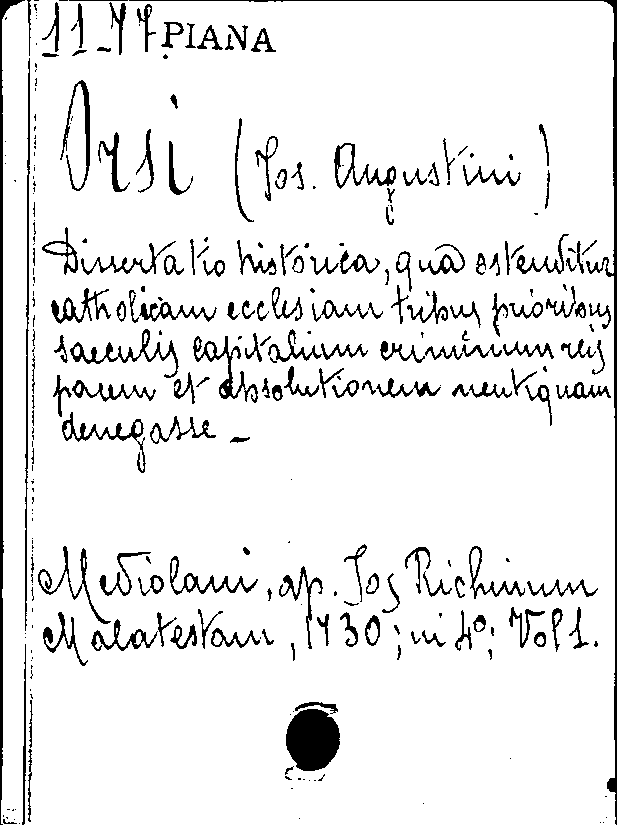 11-77 PIANA
Orsi (Jos. Augustini)
Dissertatio historica, qua ostenditur
catholicam ecclesiam tribus prioribus
saeculis capitalium criminum reis
pacem et absolutionem neutiquam
denegasse -
Mediolani, ap. Jos Richinum
Malatestam, 1730; in 4º; Vol 1.